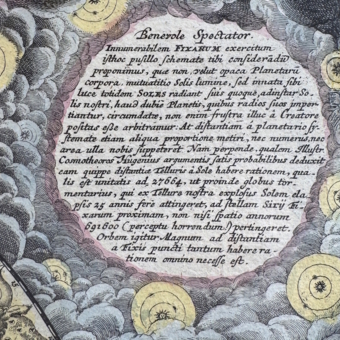 Benevole Spectator.
Innumerabilem FIXARUM exercitum
isthoc pusillo schemate tibi considerādū
proponimus, quæ non velut opaca Planetarū
corpora mutuatitiâ Solis lumine, sed innata sibi
luce totidem SOLES radiant suis quoque, ad instar So-
lis nostri, haud dubie Planetis, quibus radios suos imper-
tiantur, circumdatæ, non enim frustra illuc à Creatore
positas esse arbitramur. At distantiam à planetario sy-
stemate etiam aliqua proportione metiri, nec numerus, nec
area ulla nobis suppetaret. Nam perpende, qualem Illustr.
Cosmotheoros Hugenius argumentis satis probabilibus deduxit
eam quippe distantiæ Telluris à Sole habere rationem, qua-
lis est unitatis ad 27664, ut proinde globus tor-
mentarius, qui ex Tellure nostra explosus Solem ela-
psis 25 annis ferè attingeret, ad stellam Sirij Fi-
xarum proximam, non nisi spatio annorum
691600 (perceptu horrendum!) pertingeret.
Orbem igitur Magnum ad distantiam
a Fixis puncti tantum habere ra-
tionem omnino necesse est.